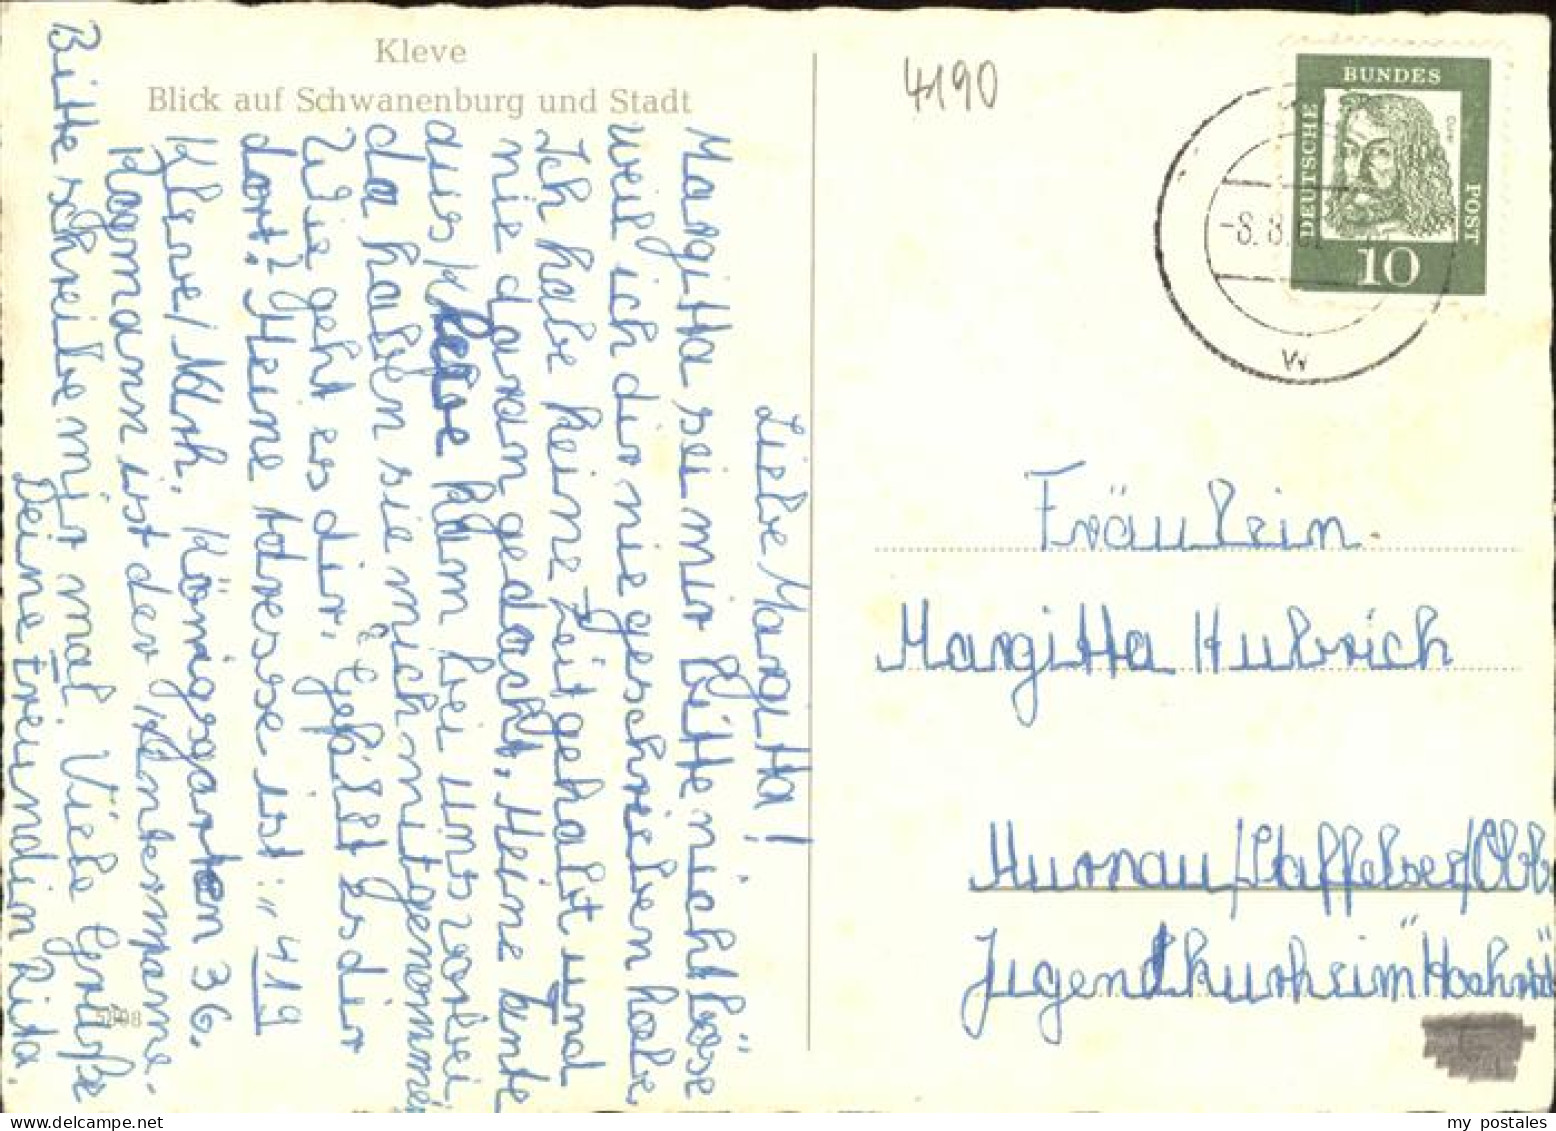 Kleve
Blick auf Schwanenburg und Stadt
Liebe Margitta!
Margitta sei mir Bitte nicht böse
weil ich dir nie geschrieben habe.
Ich habe keine Zeit gehabt und
nie daran gedacht, Meine Tante
aus Kleve kam bei uns vorbei
da haben sie mich mitgenommen
Wie geht es dir. Gefällt es dir
dort? Meine Adresse ist: " 419
Kleve/Ndrh. Königsgarten 36.
Kaymann ist der
Bitte schreibe mir mal. Viele Grüße
Deine Freundin Rita.
5898
4190
DEUTSCHE
BUNDES
POST
Dürer
10
-8.8.61
w
Fräulein
Margitta Hubrich
Murnau/Staffelsee/Obb
Jugendkurheim "Hochried
my postales